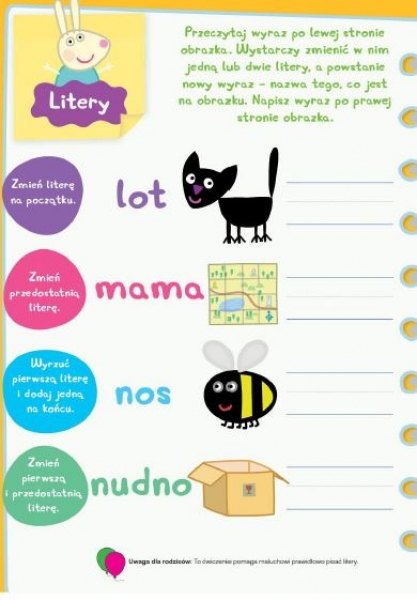 Litery
Przeczytaj wyraz po lewej stronie
obrazka. Wystarczy zmienić w nim
jedną lub dwie litery, a powstanie
nowy wyraz – nazwa tego, co jest
na obrazku. Napisz wyraz po prawej
stronie obrazka.
Zmień literę
na początku.
lot
Zmień
przedostatnią
literę.
mama
Wyrzuć
pierwszą literę
i dodaj jedną
na końcu.
nos
Zmień
pierwszą
i przedostatnią
literę.
nudno
Uwaga dla rodziców: To ćwiczenie pomaga maluchowi prawidłowo pisać litery.